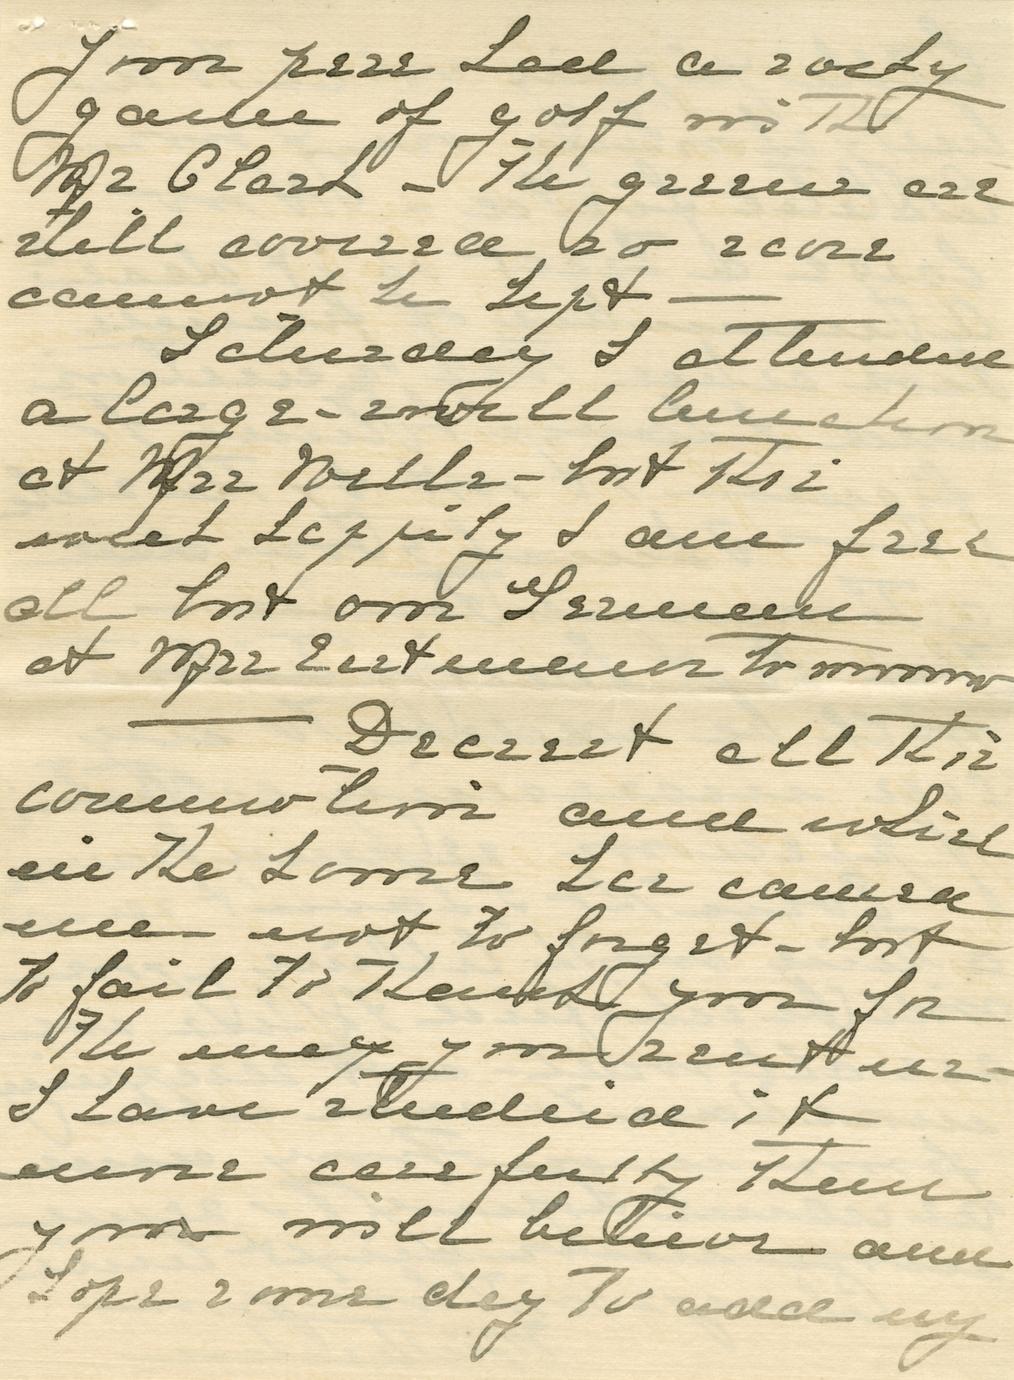 Your pere had a rosty
game of golf with
Mr Clark - The greens are
still covered so score
cannot be kept —
Saturday I attended
a large - small luncheon
at Mrs Wells - but this
week happily I am free
all but our German
at Mrs Eastmans tomorrow
— Dearest all this
commotion and whirl
in the house has caused
me not to forget - but
to fail to thank you for
the map you sent us -
I have studied it
more carefully than
you will believe and
hope some day to add my